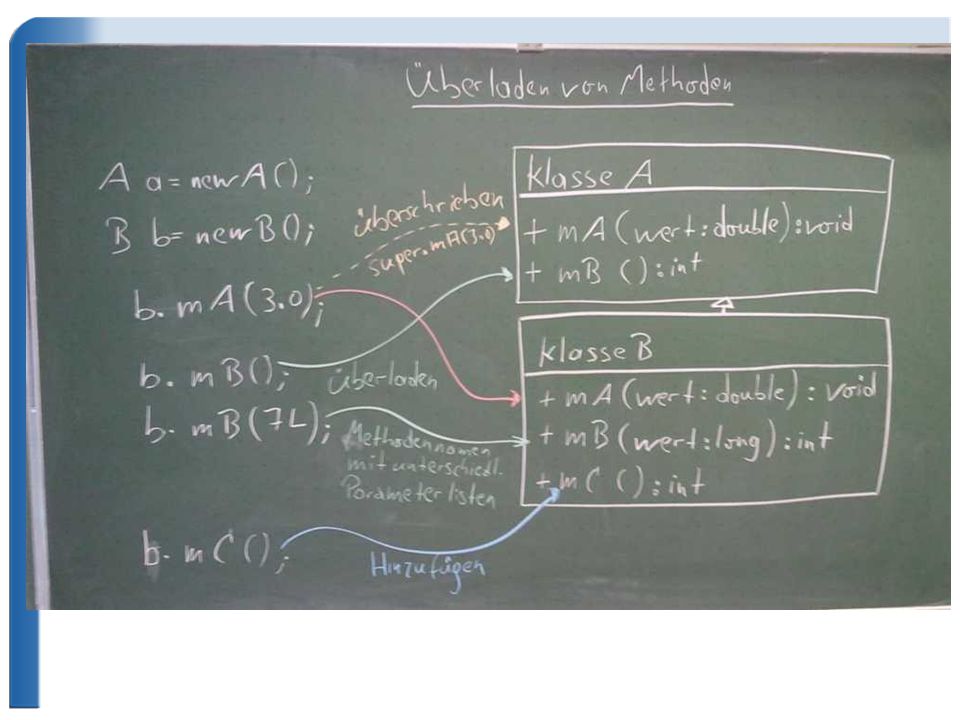 Überladen von Methoden
A a = new A();
B b = new B();
b. mA(3.0);
b. mB();
b. mB(7L);
b. mC();
überschrieben
super.mA(3.0)
überladen
Methodennamen
mit unterschiedl.
Parameterlisten
Hinzufügen
Klasse A
+ mA(wert:double):void
+ mB():int
Klasse B
+ mA(wert:double):void
+ mB(wert:long):int
+ mC():int